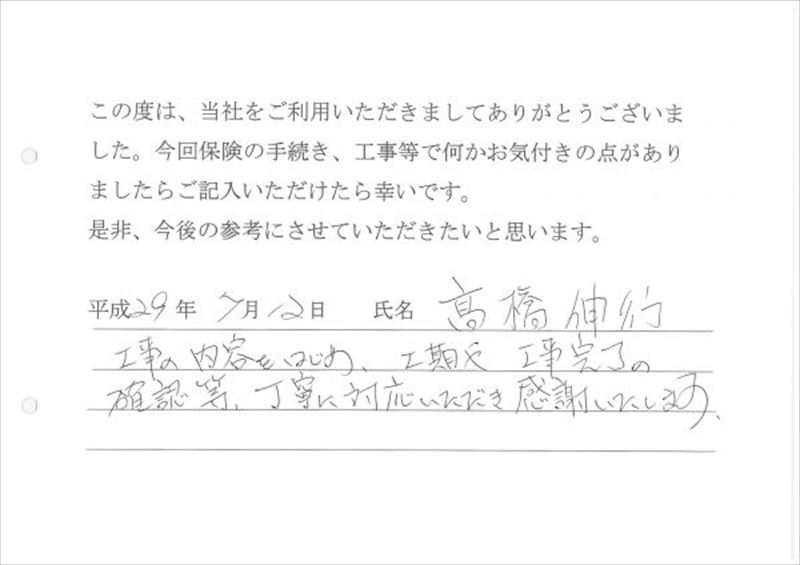 この度は、当社をご利用いただきましてありがとうございま
した。今回保険の手続き、工事等で何かお気付きの点があり
ましたらご記入いただけたら幸いです。
是非、今後の参考にさせていただきたいと思います。
平成29年 7月12日 氏名 髙橋伸行
工事の内容をはじめ、工期や工事完了の
確認等、丁寧に対応いただき感謝いたします。